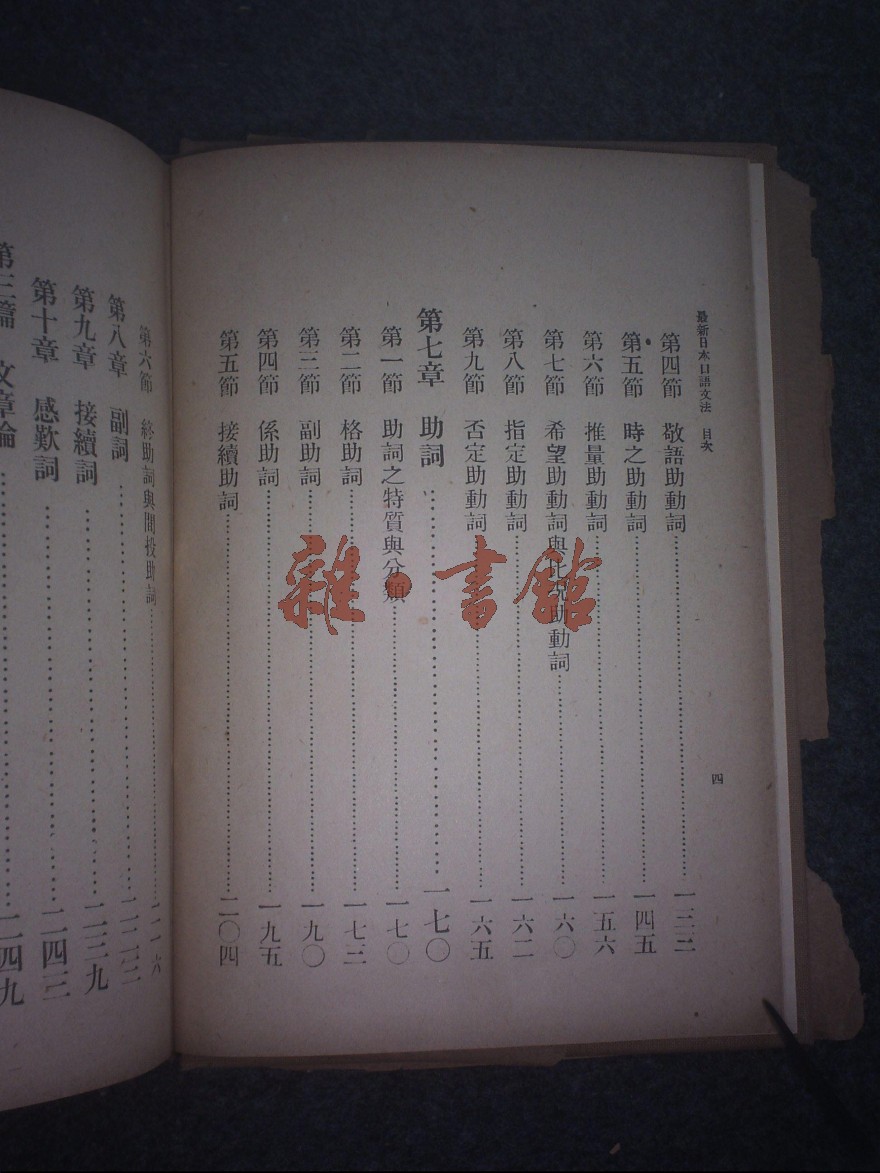 最新日本口語文法 目次
四
第四節 敬語助動詞 一三三
第五節 時之助動詞 一四五
第六節 推量助動詞 一五六
第七節 希望助動詞與比況助動詞 一六〇
第八節 指定助動詞 一六二
第九節 否定助動詞 一六五
第七章 助詞 一七〇
第一節 助詞之特質與分類 一七〇
第二節 格助詞 一七三
第三節 副助詞 一九〇
第四節 係助詞 一九五
第五節 接續助詞 二〇四
第六節 終助詞與間投助詞 二一六
第八章 副詞 二二三
第九章 接續詞 二三九
第十章 感歎詞 二四三
第三篇 文章論 二四九
雜·書館